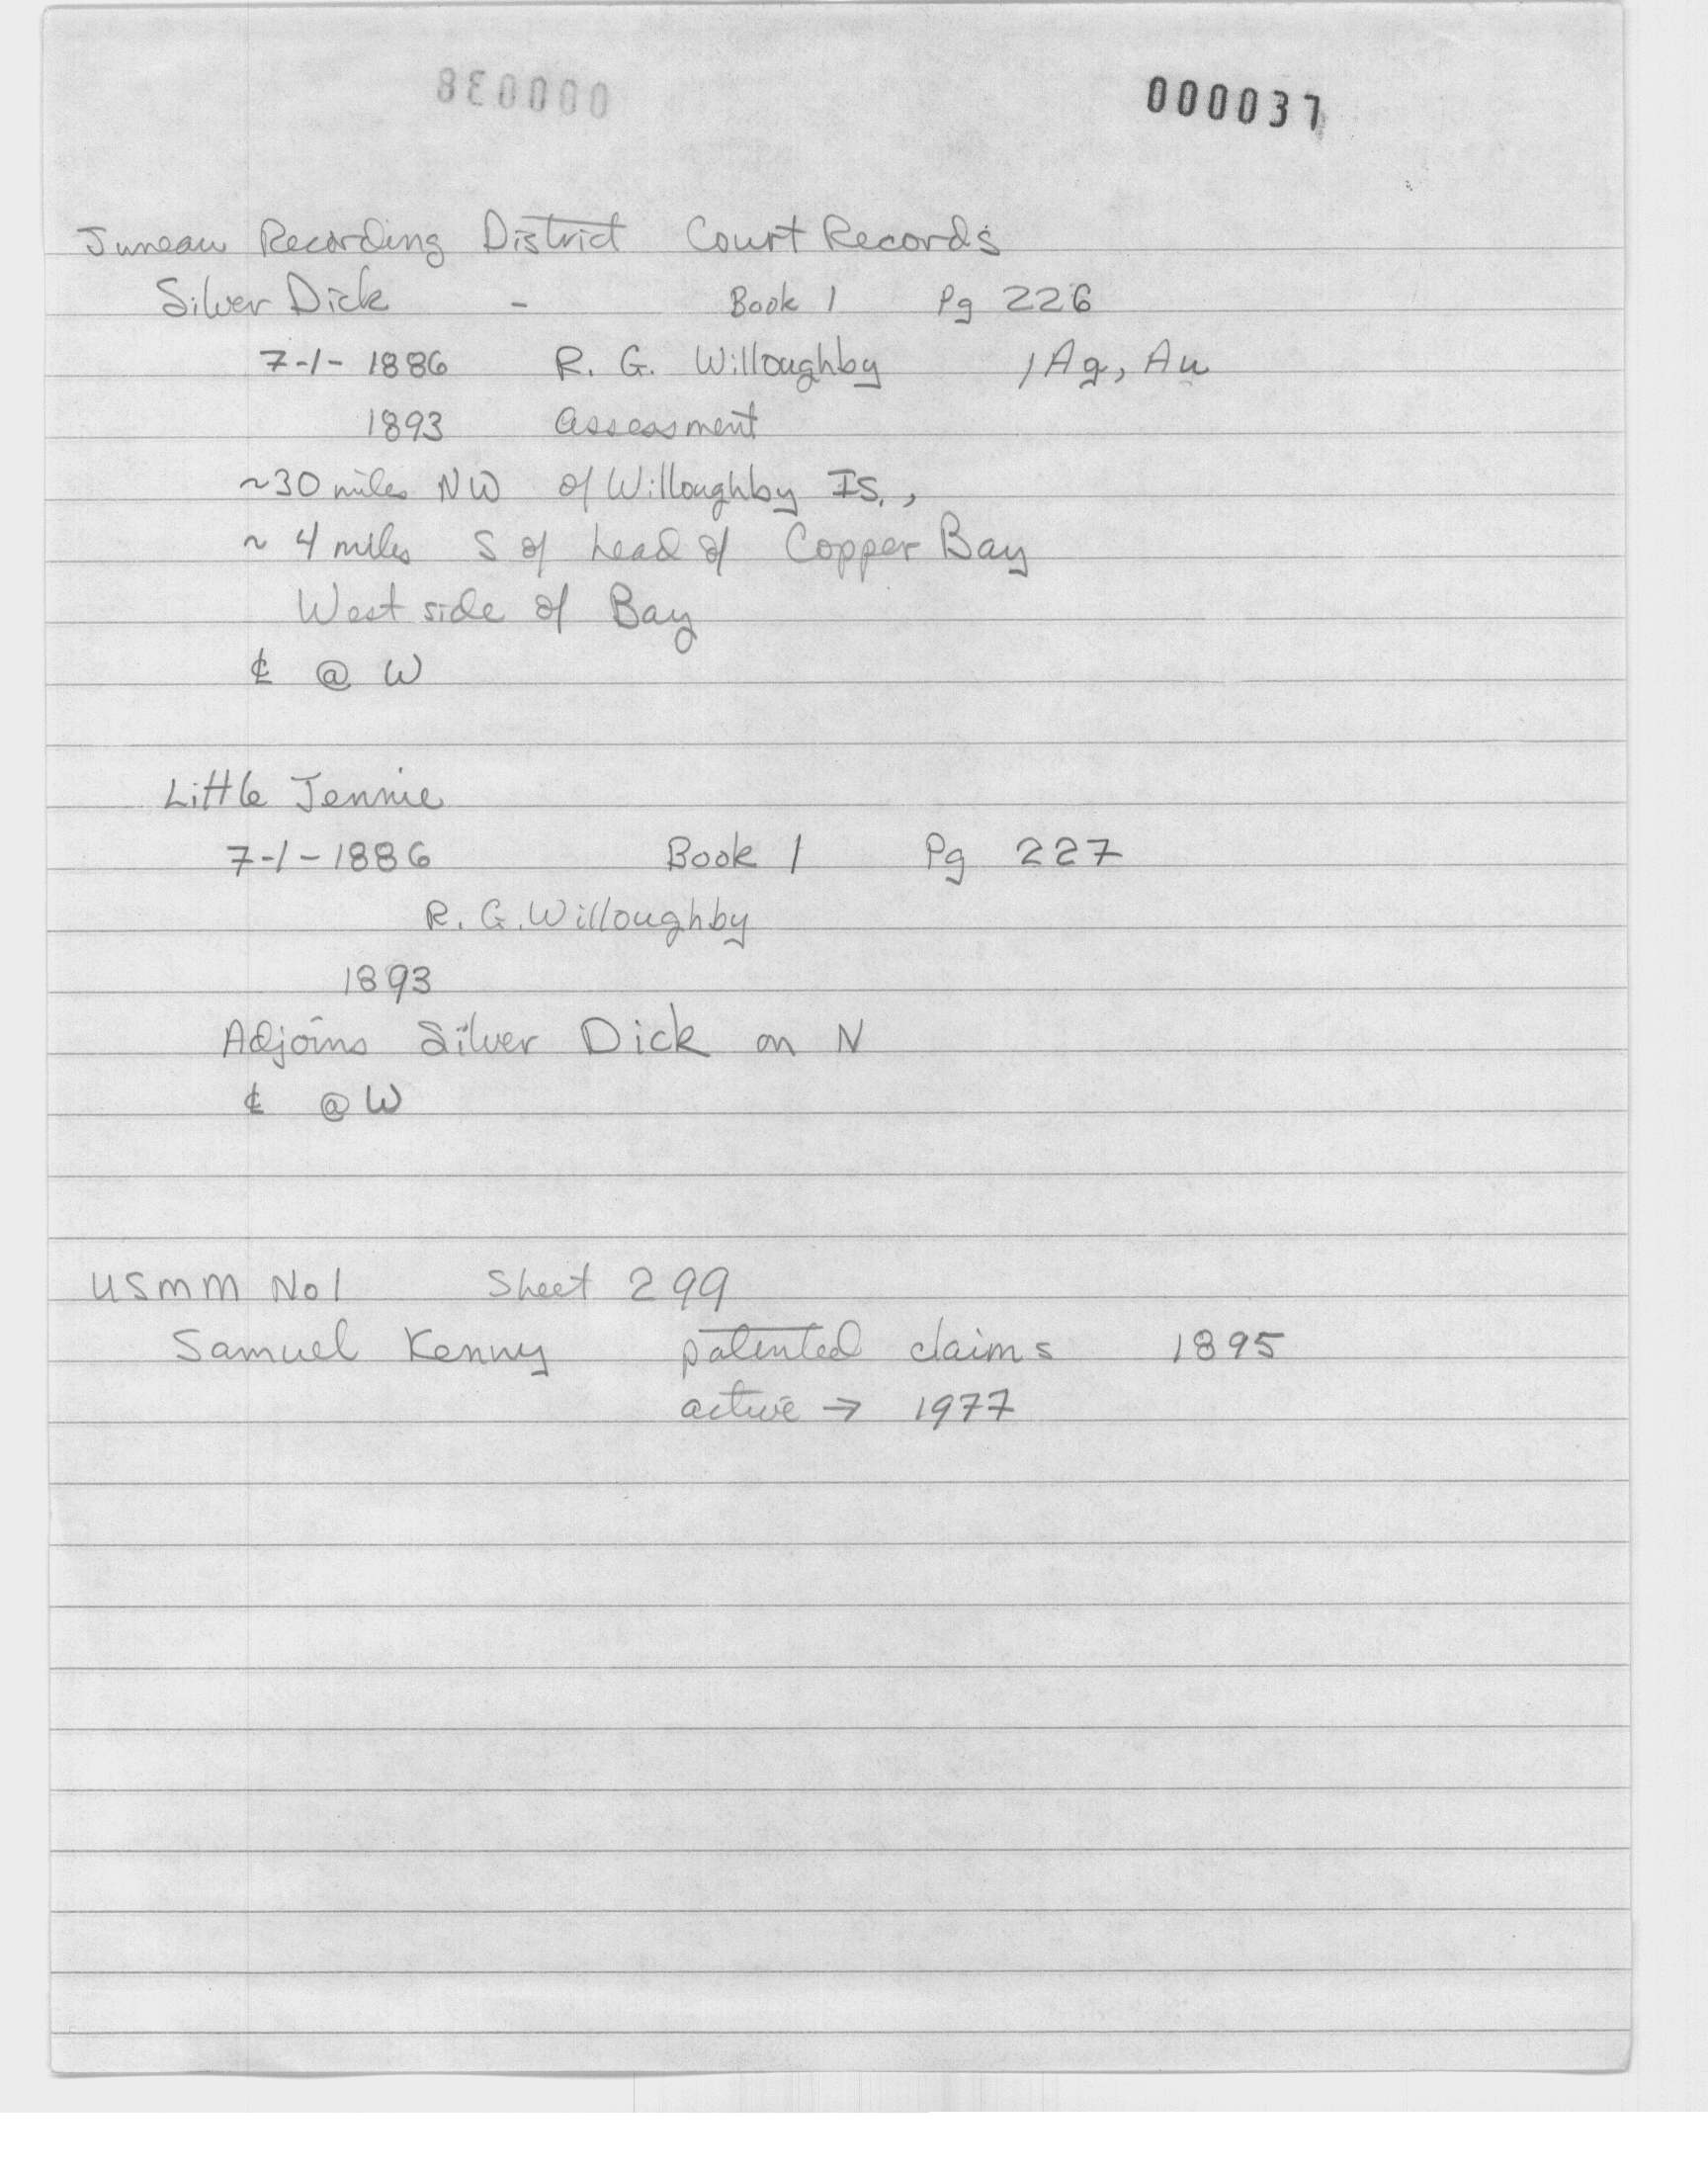 000038 000037
Juneau Recording District Court Records
Silver Dick - Book 1 Pg 226
7-1-1886 R. G. Willoughby 1 Ag, Au
1893 Assessment
~30 miles NW of Willoughby Is.,
~ 4 miles S of head of Copper Bay
West side of Bay
℄ @ W
Little Jennie
7-1-1886 Book 1 Pg 227
R. G. Willoughby
1893
Adjoins Silver Dick on N
℄ @ W
USMM No1 Sheet 299
Samuel Kenny patented claims 1895
active → 1977